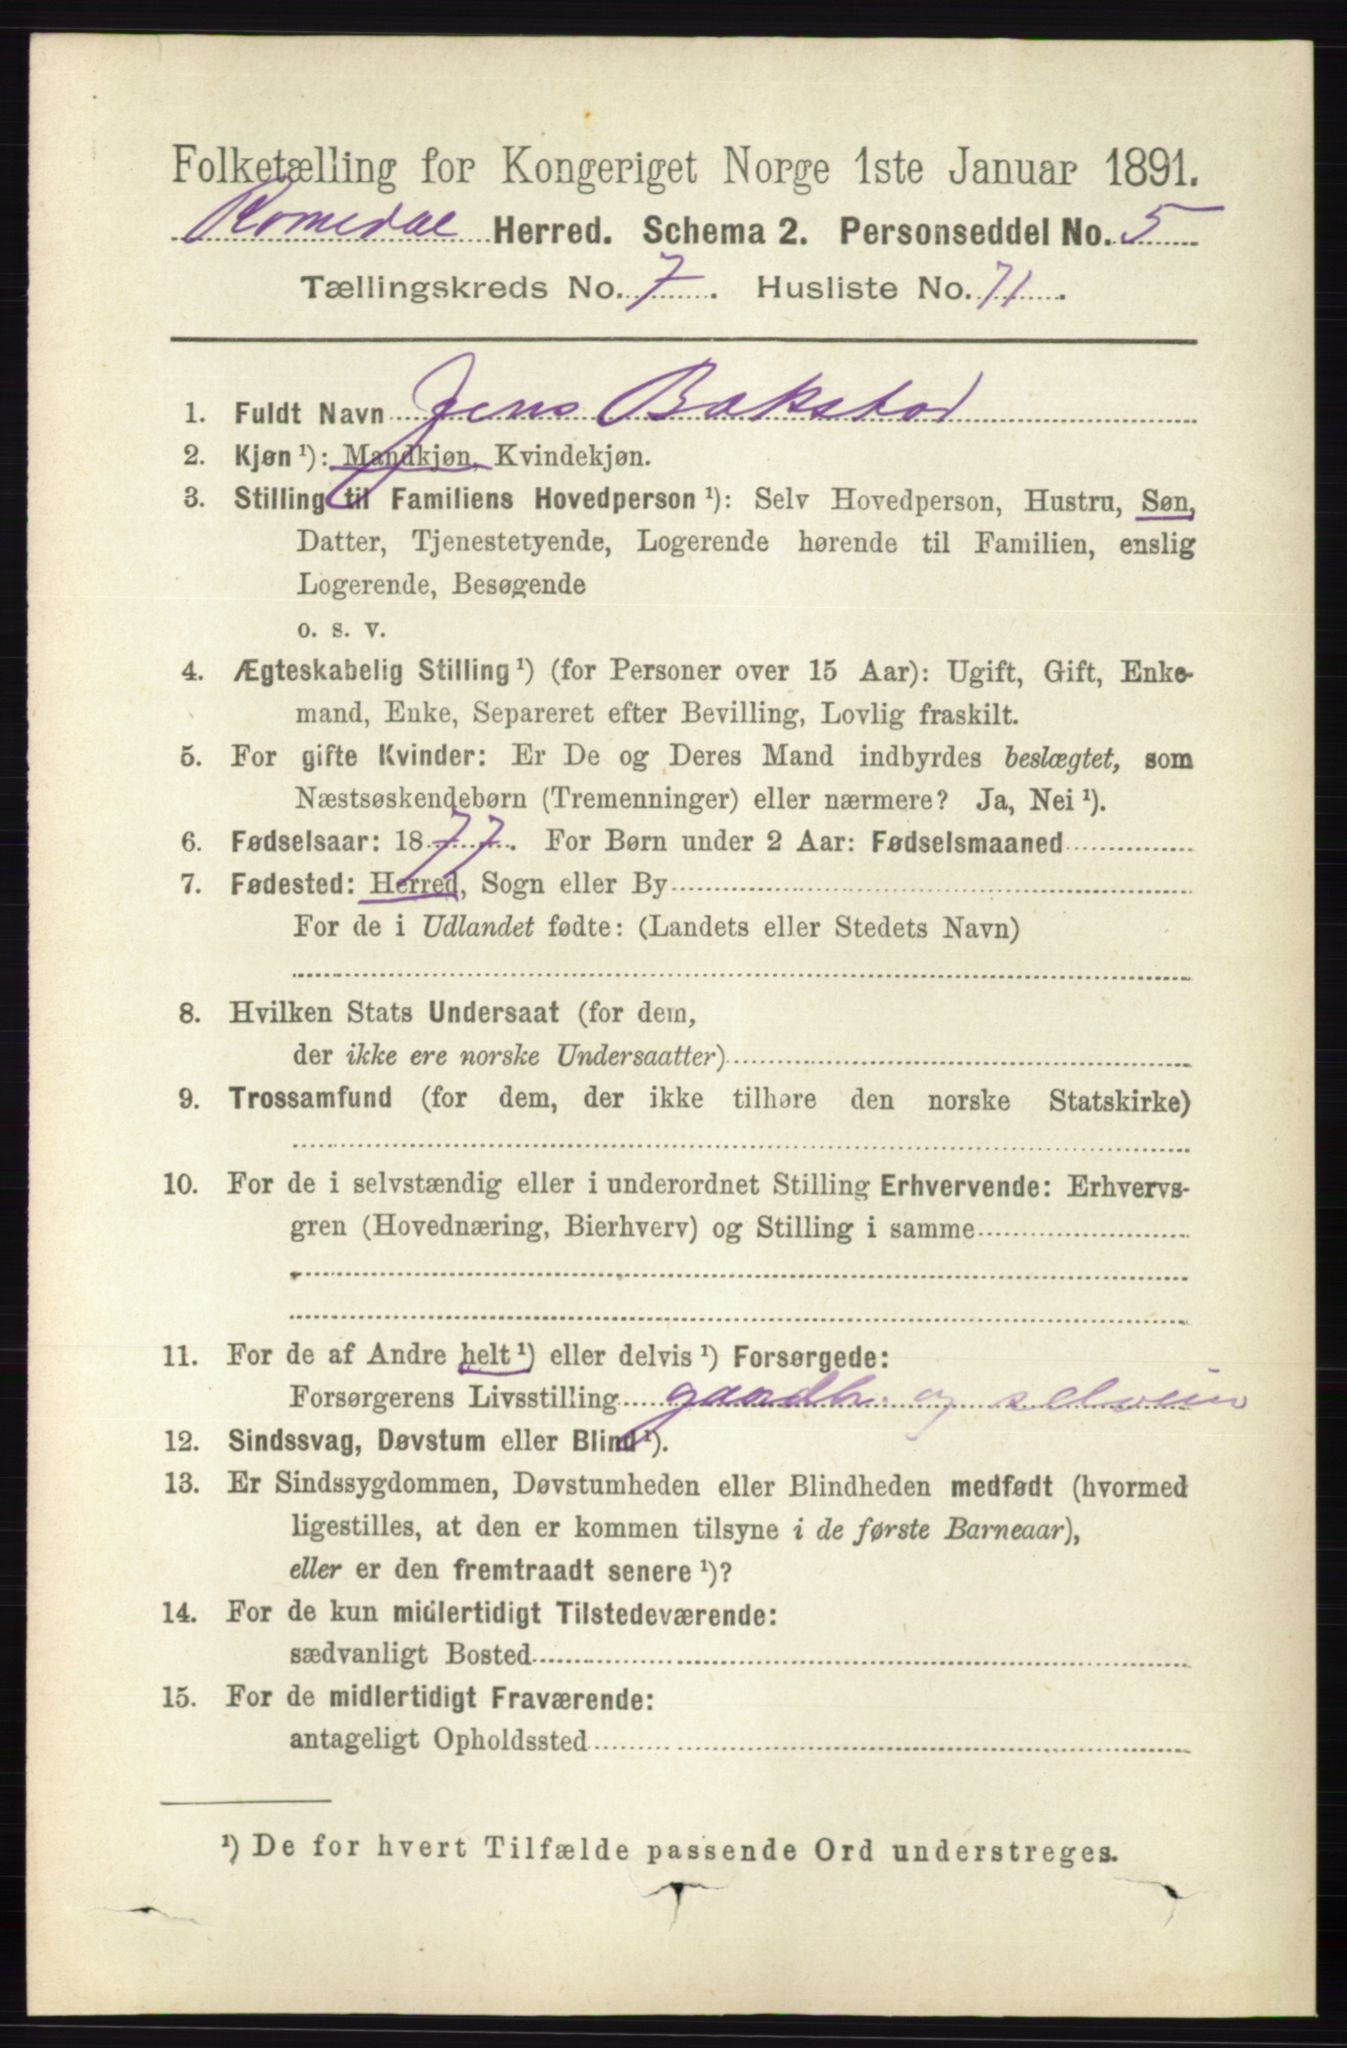 Folketælling for Kongeriget Norge 1ste Januar 1891.
Romedal Herred. Schema 2. Personseddel No. 5
Tællingskreds No. 7. Husliste No. 71.
1. Fuldt Navn Jens Bakstad
2. Kjøn ¹): Mandkjøn, Kvindekjøn.
3. Stilling til Familiens Hovedperson ¹): Selv Hovedperson, Hustru, Søn,
Datter, Tjenestetyende, Logerende hørende til Familien, enslig
Logerende, Besøgende
o. s. v.
4. Ægteskabelig Stilling ¹) (for Personer over 15 Aar): Ugift, Gift, Enke-
mand, Enke, Separeret efter Bevilling, Lovlig fraskilt.
5. For gifte Kvinder: Er De og Deres Mand indbyrdes beslægtet, som
Næstsøskendebørn (Tremenninger) eller nærmere? Ja, Nei ¹).
6. Fødselsaar: 1877. For Børn under 2 Aar: Fødselsmaaned
7. Fødested: Herred, Sogn eller By
For de i Udlandet fødte: (Landets eller Stedets Navn)
8. Hvilken Stats Undersaat (for dem,
der ikke ere norske Undersaatter)
9. Trossamfund (for dem, der ikke tilhøre den norske Statskirke)
10. For de i selvstændig eller i underordnet Stilling Erhvervende: Erhvervs-
gren (Hovednæring, Bierhverv) og Stilling i samme
11. For de af Andre helt ¹) eller delvis ¹) Forsørgede:
Forsørgerens Livsstilling gaardbr. og selveier
12. Sindssvag, Døvstum eller Blind ¹).
13. Er Sindssygdommen, Døvstumheden eller Blindheden medfødt (hvormed
ligestilles, at den er kommen tilsyne i de første Barneaar),
eller er den fremtraadt senere ¹)?
14. For de kun midlertidigt Tilstedeværende:
sædvanligt Bosted
15. For de midlertidigt Fraværende:
antageligt Opholdssted
¹) De for hvert Tilfælde passende Ord understreges.